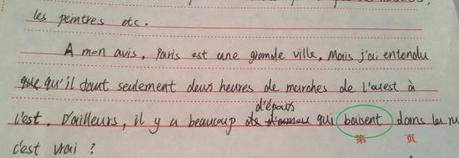 les peintres etc.
A mon avis, Paris est une grande ville, Mais j'ai entendu
qu'il faut seulement deux heures de marches de l'ouest à
d'épous
l'est. D'ailleurs, il y a beaucoup qui baisent dans les
第 页
c'est vrai ?